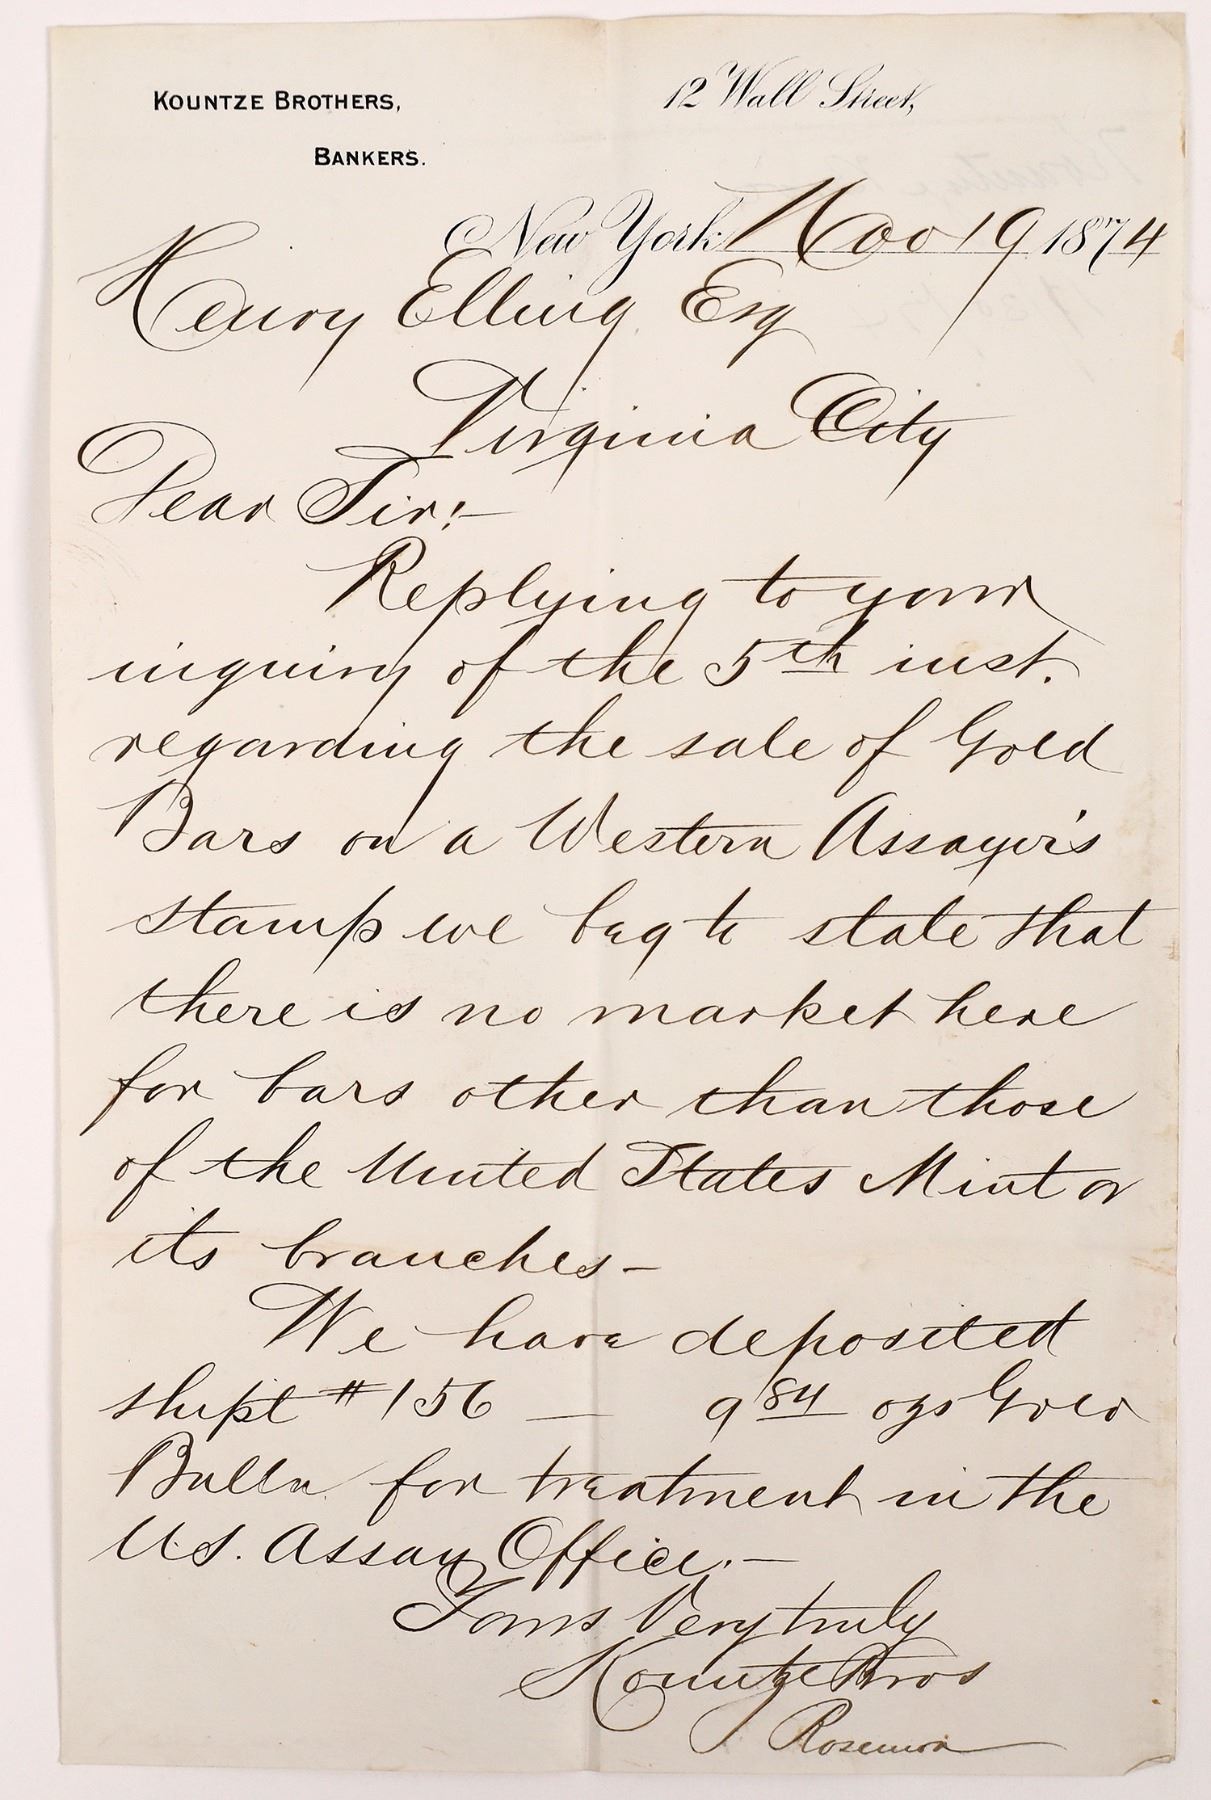 KOUNTZE BROTHERS,
BANKERS.
12 Wall Street,
New York Nov 19 1874
Henry Elling Esq
Virginia City
Dear Sir:—
Replying to your
inquiry of the 5th inst.
regarding the sale of Gold
Bars on a Western Assayer's
stamp we beg to state that
there is no market here
for bars other than those
of the United States Mint or
its branches —
We have deposited
shipt # 156 — 9 84 ozs Gold
Bulln for treatment in the
U.S. Assay Office.—
Yours Very truly
Kountze Bros